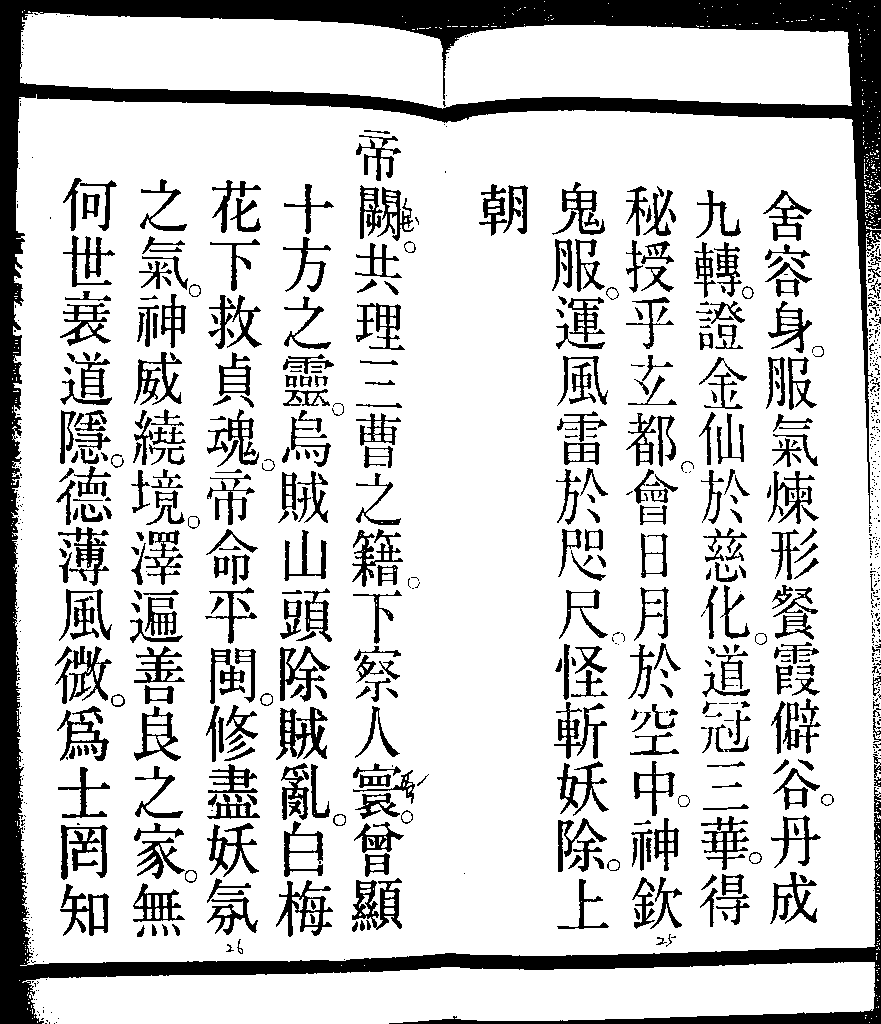 舍容身。服氣煉形餐霞僻谷。丹成
九轉。證金仙於慈化。道冠三華。得
秘授乎玄都。會日月於空中。神欽
鬼服。運風雷於咫尺。怪斬妖除。上
朝
25
帝闕。共理三曹之籍。下察人寰。曾顯
十方之靈。烏賊山頭除賊亂。白梅
花下救貞魂。帝命平閩。修盡妖氛
之氣。神威繞境。澤遍善良之家。無
何世衰道隱。德薄風微。爲士罔知
26